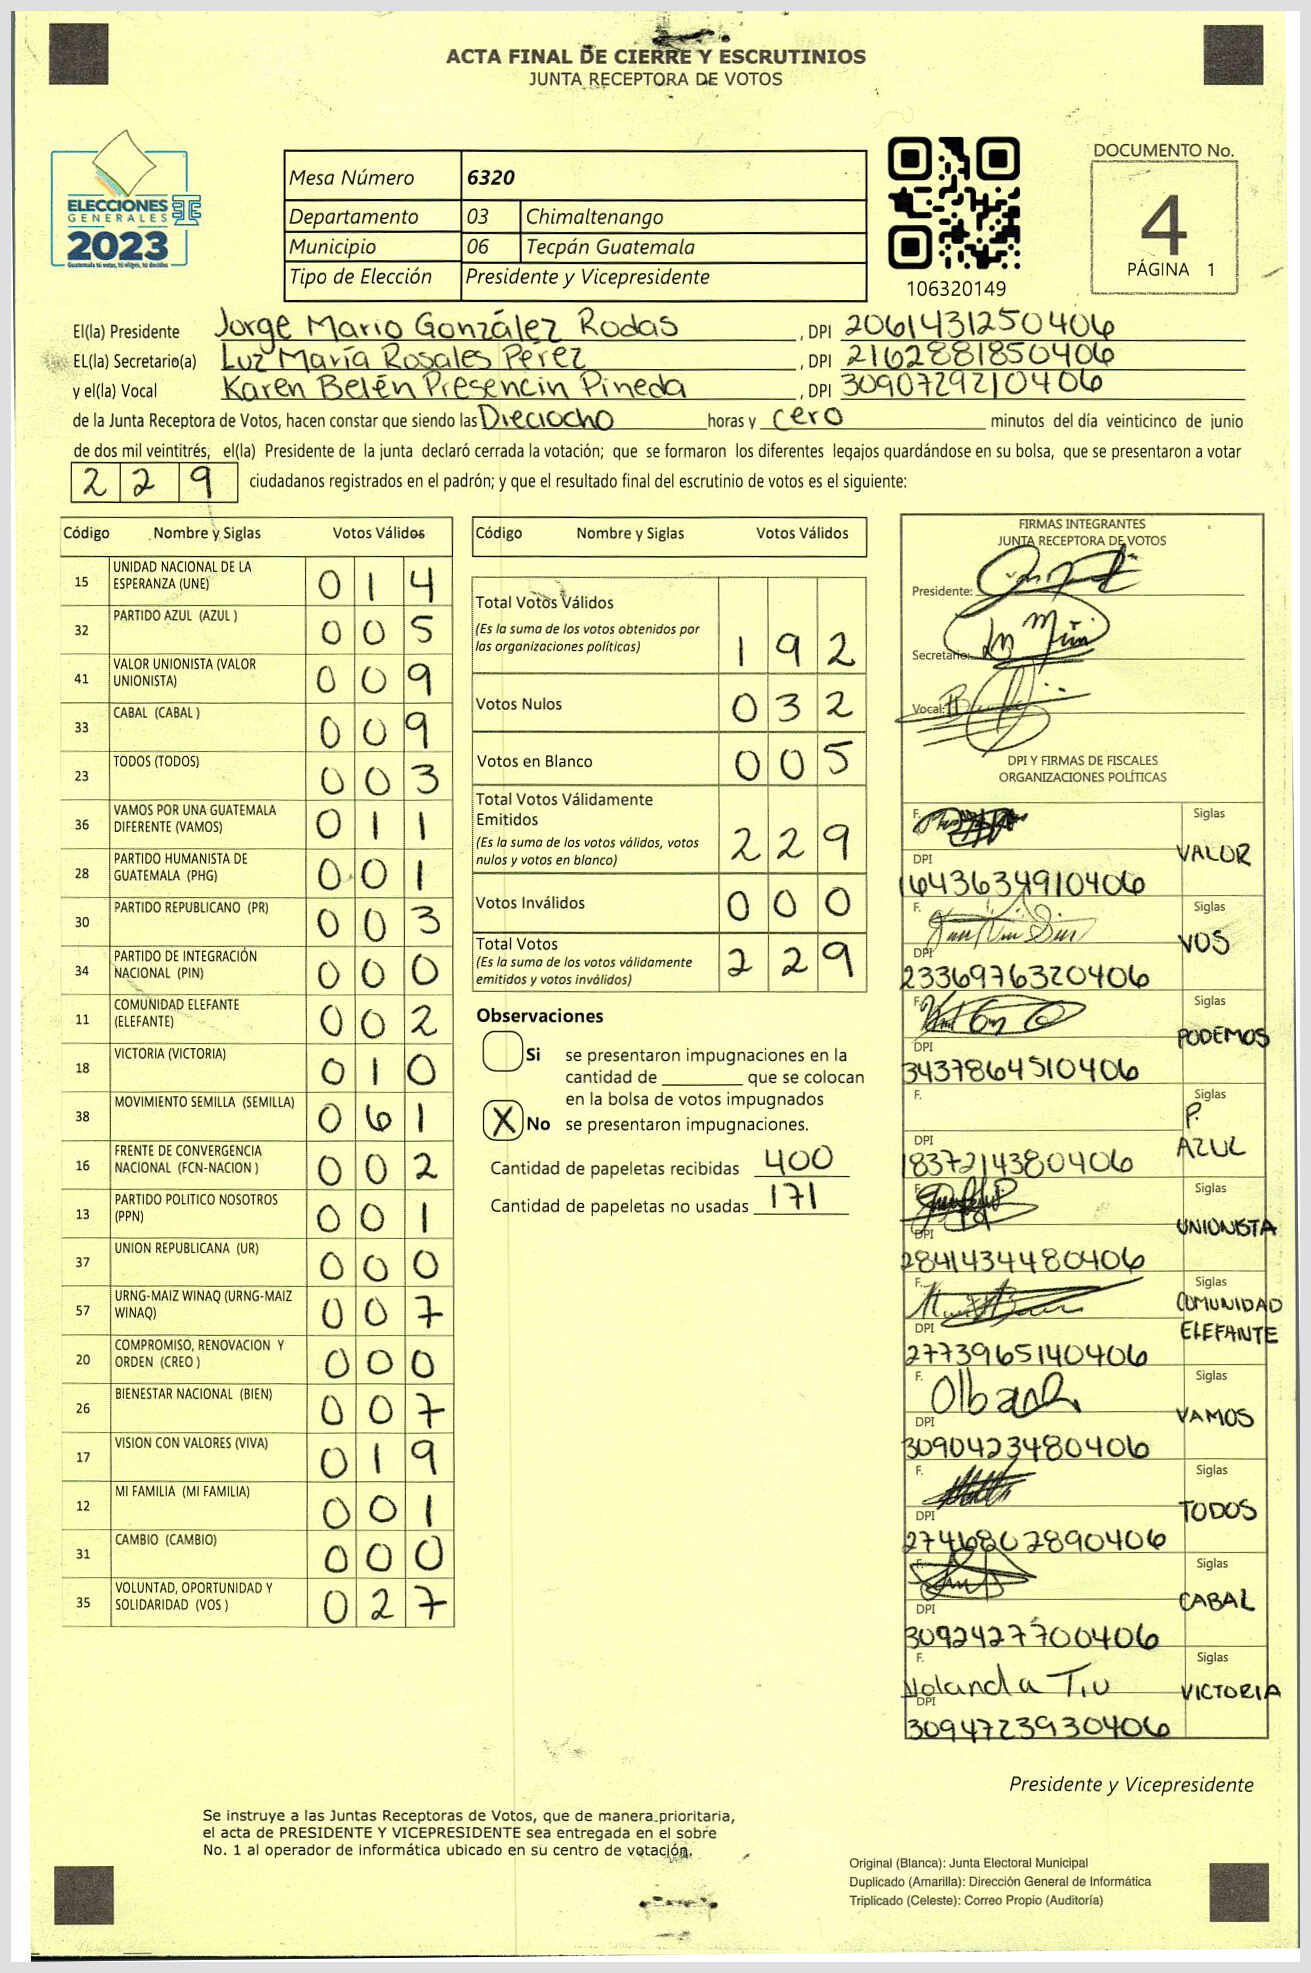 ACTA FINAL DE CIERRE Y ESCRUTINIOS
JUNTA RECEPTORA DE VOTOS
ELECCIONES
GENERALES
2023
Guatemala tú votas, tú eliges, tú decides
Mesa Número 6320
Departamento 03 Chimaltenango
Municipio 06 Tecpán Guatemala
Tipo de Elección Presidente y Vicepresidente
106320149
DOCUMENTO No.
4
PÁGINA 1
El(la) Presidente Jorge Mario González Rodas , DPI 2061431250406
EL(la) Secretario(a) Luz María Rosales Pérez , DPI 2162881850406
y el(la) Vocal Karen Belén Presencin Pineda , DPI 3090729210406
de la Junta Receptora de Votos, hacen constar que siendo las Dieciocho horas y cero minutos del día veinticinco de junio
de dos mil veintitrés, el(la) Presidente de la junta declaró cerrada la votación; que se formaron los diferentes legajos quardándose en su bolsa, que se presentaron a votar
229 ciudadanos registrados en el padrón; y que el resultado final del escrutinio de votos es el siguiente:
Código Nombre y Siglas Votos Válidos
15 UNIDAD NACIONAL DE LA ESPERANZA (UNE) 014
32 PARTIDO AZUL (AZUL ) 005
41 VALOR UNIONISTA (VALOR UNIONISTA) 009
33 CABAL (CABAL ) 009
23 TODOS (TODOS) 003
36 VAMOS POR UNA GUATEMALA DIFERENTE (VAMOS) 011
28 PARTIDO HUMANISTA DE GUATEMALA (PHG) 001
30 PARTIDO REPUBLICANO (PR) 003
34 PARTIDO DE INTEGRACIÓN NACIONAL (PIN) 000
11 COMUNIDAD ELEFANTE (ELEFANTE) 002
18 VICTORIA (VICTORIA) 010
38 MOVIMIENTO SEMILLA (SEMILLA) 061
16 FRENTE DE CONVERGENCIA NACIONAL (FCN-NACION ) 002
13 PARTIDO POLITICO NOSOTROS (PPN) 001
37 UNION REPUBLICANA (UR) 000
57 URNG-MAIZ WINAQ (URNG-MAIZ WINAQ) 007
20 COMPROMISO, RENOVACION Y ORDEN (CREO ) 000
26 BIENESTAR NACIONAL (BIEN) 007
17 VISION CON VALORES (VIVA) 019
12 MI FAMILIA (MI FAMILIA) 001
31 CAMBIO (CAMBIO) 000
35 VOLUNTAD, OPORTUNIDAD Y SOLIDARIDAD (VOS ) 027
Código Nombre y Siglas Votos Válidos
Total Votos Válidos
(Es la suma de los votos obtenidos por las organizaciones políticas) 192
Votos Nulos 032
Votos en Blanco 005
Total Votos Válidamente Emitidos
(Es la suma de los votos válidos, votos nulos y votos en blanco) 229
Votos Inválidos 000
Total Votos
(Es la suma de los votos válidamente emitidos y votos inválidos) 229
Observaciones
Si se presentaron impugnaciones en la
cantidad de ________ que se colocan
en la bolsa de votos impugnados
X No se presentaron impugnaciones.
Cantidad de papeletas recibidas 400
Cantidad de papeletas no usadas 171
FIRMAS INTEGRANTES
JUNTA RECEPTORA DE VOTOS
Presidente:
Secretario:
Vocal:
DPI Y FIRMAS DE FISCALES
ORGANIZACIONES POLÍTICAS
F. Siglas
VALOR
DPI
1643634910406
F. Siglas
VOS
DPI
2336976320406
F. Siglas
PODEMOS
DPI
3437864510406
F. Siglas
P. AZUL
DPI
1837214380406
F. Siglas
UNIONISTA
DPI
2841434480406
F. Siglas
COMUNIDAD
ELEFANTE
DPI
2773965140406
F. Siglas
VAMOS
DPI
3090423480406
F. Siglas
TODOS
DPI
2746807890406
F. Siglas
CABAL
DPI
3092427700406
F. Siglas
Yolanda Tiu VICTORIA
DPI
3094723930406
Presidente y Vicepresidente
Se instruye a las Juntas Receptoras de Votos, que de manera prioritaria,
el acta de PRESIDENTE Y VICEPRESIDENTE sea entregada en el sobre
No. 1 al operador de informática ubicado en su centro de votación.
Original (Blanca): Junta Electoral Municipal
Duplicado (Amarilla): Dirección General de Informática
Triplicado (Celeste): Correo Propio (Auditoría)